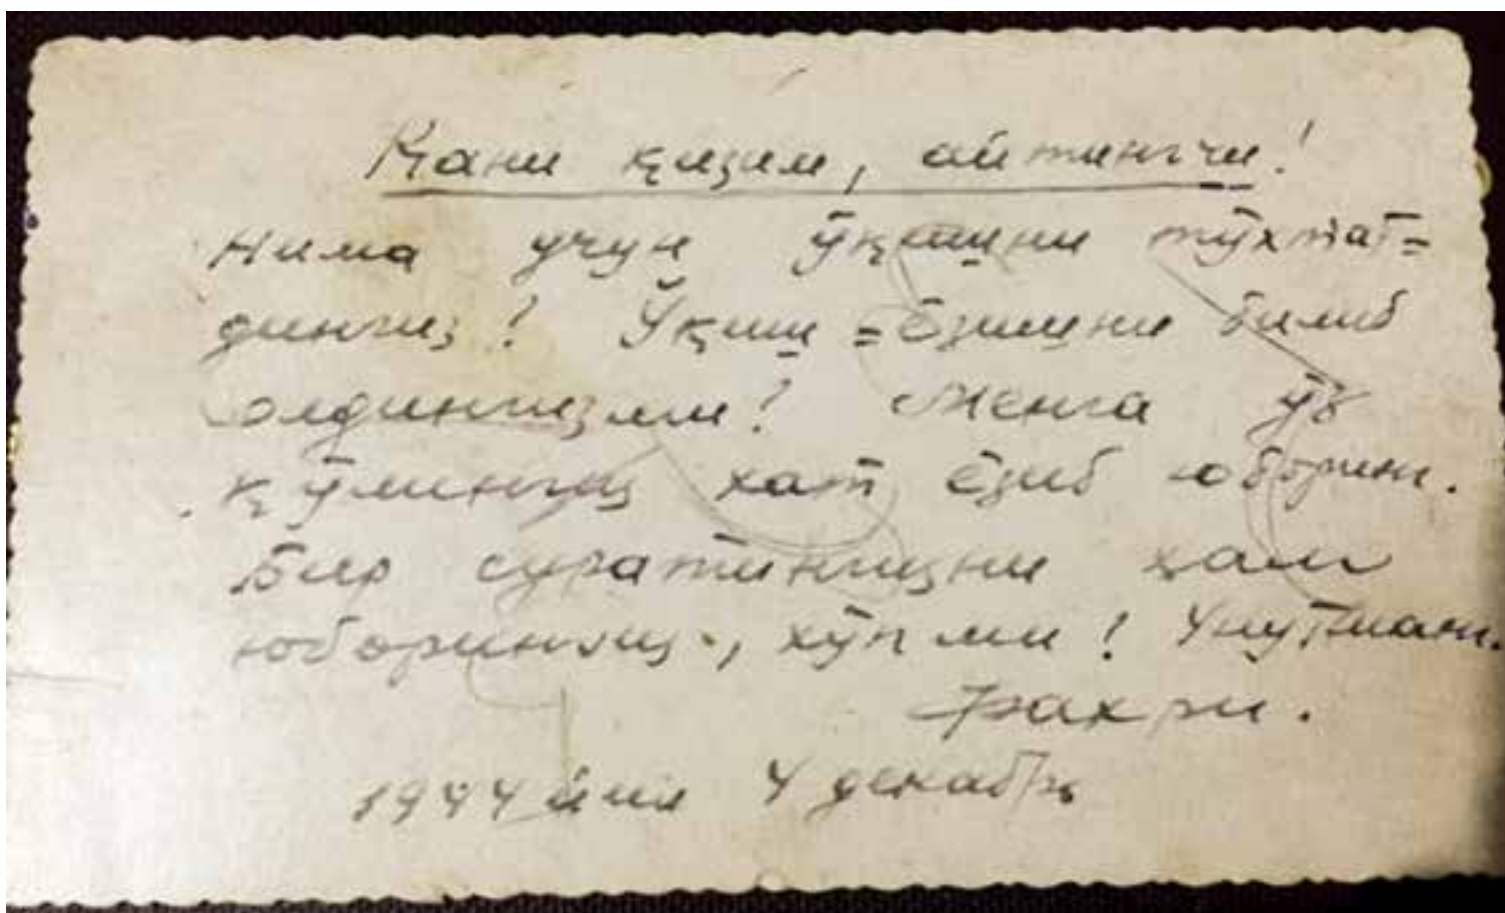 Қани қизим, айтингчи!
Нима учун ўқишни тўхтат=
дингиз? Ўқиш=ёзишни билиб
олдингизми? Менга ўз
қўлингиз хат ёзиб юборинг.
Бир суратингизни ҳам
юборингиз, хўпми! Унутманг.
Фахри.
1944 йил 4 декабрь